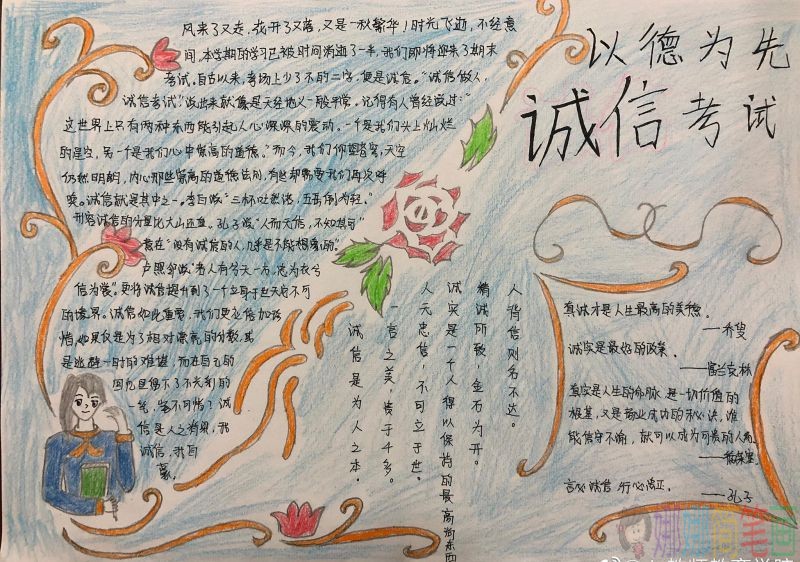 以德为先
诚信考试
风来了又走，花开了又落，又是一秋繁华！时光飞逝，不经意
间，本学期的学习已被时间消逝了一半，我们即将迎来了期末
考试。自古以来，考场上少不了的二字，便是诚信。“诚信做人，
诚信考试”，说出来就像是天经地义一般平常。记得有人曾经说过：“
这世界上只有两种东西能引起人心深深的震动。一个是我们头上灿烂
的星空，另一个是我们心中崇高的道德。”而今，我们仰望苍穹，天空
仍然明朗，内心那些崇高的道德法则，有些却需要我们再次呼
唤。诚信就是其中之一。李白做“三杯吐然诺，五岳倒为轻。”
形容诚信的分量比大山还重。孔子说“人而无信，不知其可”
意在“没有诚信的人，几乎是不能想象的”。
卢照邻做“若人有兮天一方，忠为衣兮
信为裳”。更将诚信提升到了一个立身于世无存不可
的境界。诚信如此重要，我们更应倍加珍
惜。如果仅是为了相对崇高的分数，其
是逃避一时的难堪，而在自己的
一笔，岂不可惜？诚
信是人之脊梁，我
诚信，我自
豪。
人背信则名不达。
精诚所致，金石为开。
诚实是一个人得以保持的最高尚东西
人无忠信，不可立于世。
一言之美，贵于千金。
诚信是为人之本。
真诚才是人生最高的美德。
——乔叟
诚实是最好的政策。
——富兰克林
真实是人生的命脉，是一切价值的
根基，又是商业成功的秘诀，谁
能信守不渝，就可以成为可贵的人角
言必诚信，行心忠正。
——孔子
教师教育学院